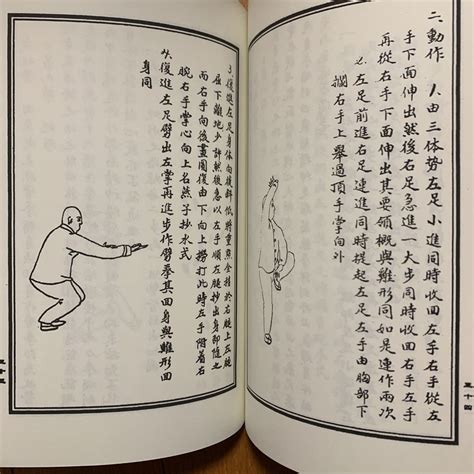 二、動作 1、由三体势左足小進同時收回左手右手從左
手下面伸出然後右足急進一大步同時右手左手
再從右手下面伸出其要領概與雞形同如是連作兩次
2、左足前進右足連進同時提起左足左手由胸部下
攔右手上舉過頂手掌向外
3、復進左足身体向後斜低將重全指於右腿上左腿
屈下離地少許然後急以左手順左腿抄出身部隨之
而右手向後畫圓復由下向上撈打此時左手附着右
腕右手掌心向上名燕子抄水式
4、復進左足劈出左掌再進步作劈拳其回身與雞形回
身同